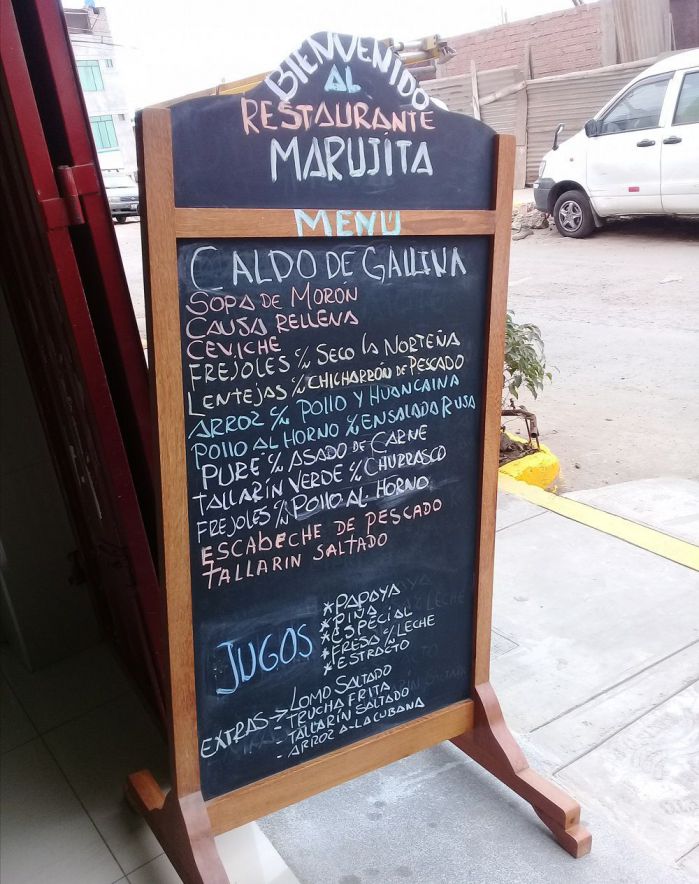 BIENVENIDO
AL
RESTAURANTE
MARUJITA
MENÚ
CALDO DE GALLINA
SOPA DE MORÓN
CAUSA RELLENA
CEVICHE
FREJOLES C/N SECO LA NORTEÑA
LENTEJAS C/ CHICHARRÓN DE PESCADO
ARROZ C/N POLLO Y HUANCAINA
POLLO AL HORNO C/N ENSALADA RUSA
PURÉ C/N ASADO DE CARNE
TALLARÍN VERDE C/N CHURRASCO
FREJOLES C/N POLLO AL HORNO
ESCABECHE DE PESCADO
TALLARIN SALTADO
JUGOS
*PAPAYA
*PIÑA
*ESPECIAL
*FRESA C/N LECHE
*ESTRACTO
EXTRAS→ LOMO SALTADO
- TRUCHA FRITA
- TALLARÍN SALTADO
- ARROZ A-LA CUBANA